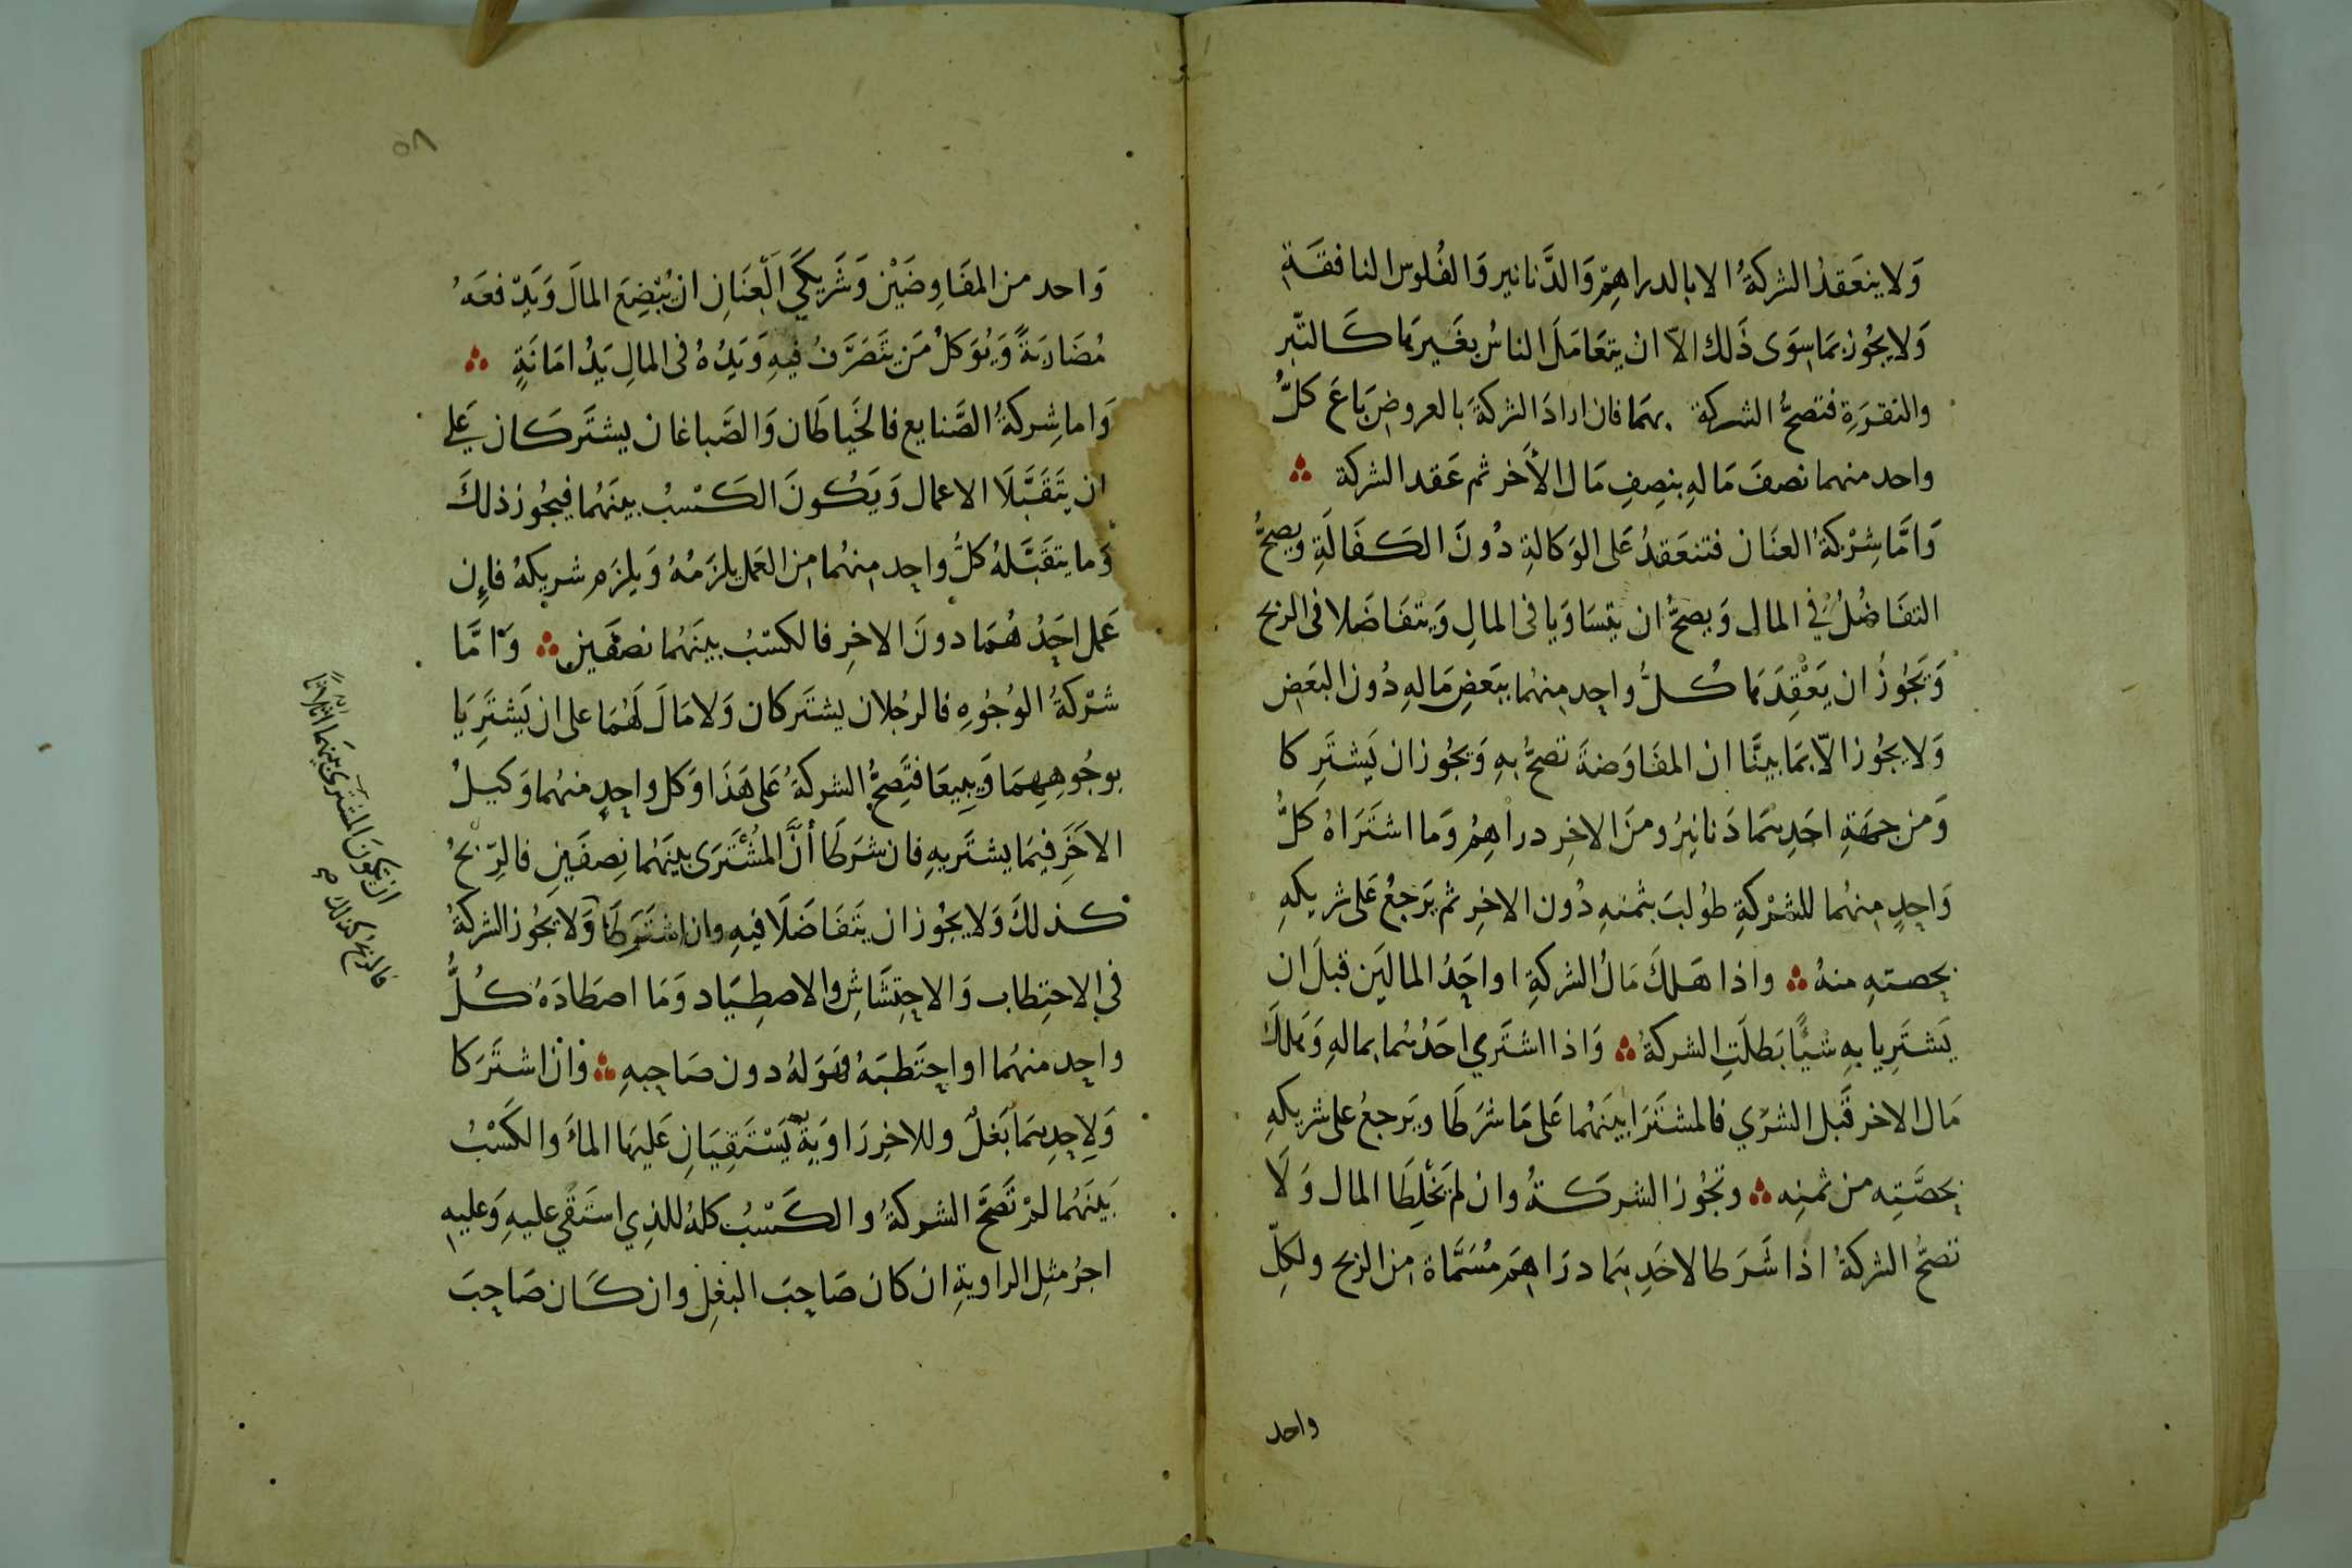 وَلا ينعَقدُ الشركةُ الا بالدراهِمْ وَالدَّنانير وَالفُلوس النافقَةِ
وَلا يجُوز بمَا سِوَى ذَلك الاّ ان يتعَامَلَ الناسُ بغَيرهَا كَالتّبر
والنقرَةِ فتصحُّ الشركة بهمَا فان ارادَ الشركةَ بالعروضِ بَاعَ كلُّ
واحد منهما نصفَ مَالهِ بنصِفِ مَال الأَخر ثم عَقد الشركة
وَامَّا شِرْكةُ العنَان فتنعَقدُ عَلى الوَكالةِ دُونَ الكَفَالَةِ ويصحُّ
التفَاضُلُ في المال وَيصحُّ ان يتسَاوَيا فى المالِ وَيتفَاضَلا فى الربح
وَيَجُوزُ ان يَعْقِدَهَا كُلُّ واحِد مِنهُما ببَعضِ مَالهِ دُون البَعض
وَلا يجُوز الّا بمَا بينَّا ان المفَاوَضةَ تصحُّ بهِ وَيجُوز ان يَشتَرِكا
وَمن جهَةِ احَدِهمَا دَنانِيرُ ومنَ الاخِر دراهِمُ وَما اشتَرَاهُ كلُّ
وَاحِدٍ مِنهُما للشرْكةِ طوُلبَ بثمنهِ دُون الاخِرِ ثم يَرَجعُ عَلى شريكهِ
بحصتهِ منهُ واذا هَلكَ مَالُ الشركةِ او احَدُ المالَين قبلَ ان
يَشتَرِيا بهِ شيًا بَطلَتِ الشركةُ وَاذا اشتَري احَدُهُما بمالهِ وَهَلكَ
مَال الاخر قَبل الشرَي فالمشتَرَا بيَنهُما عَلى مَا شرَطَا ويَرجعُ على شريكهِ
بحصَّتِه من ثمنِه وتجُوز الشركةُ وان لم يَخْلِطَا المال وَلَا
تصحُّ الشركةُ اذا شَرَطا لاحَدِهِمَا درَاهِمَ مُسَمَّاة مِن الربح ولكلِّ
واحد
٥٨
وَاحد من المفَاوِضَيْن وَشَريكَيَ الَعِنَانِ ان يُبْضِعَ المالَ وَيَدّفعَهُ
مُضَارَبَةً وَيُوَكلُ مَن يتَصَرَّفُ فيهِ وَيَدُهُ فى المالِ يَدُ امَانَةٍ
وَاما شِركةُ الصَّنايع فالخيَاطَان وَالصَّباغان يشتَركَان عَلي
ان يتَقَبَّلَا الاعمال وَيَكُونَ الكَسْبُ بينَهُما فيجُوز ذلكَ
وَما يتقَبَّلهُ كلُّ واحِد مِنهُما مِن العَمَل يلزَمُهُ وَيلزَمِ شريكهُ فإِن
عَمل احَدُهُمَا دونَ الاخِر فالكسْبُ بينَهُما نصفَينِ وَامَّا
شرْكةُ الوُجُوهِ فالرجُلان يشتَركان وَلا مَالَ لَهُمَا على ان يَشتَرِيَا
بوجُوهِهِمَا وَيبِيعَا فتَصِحُّ الشركةُ عَلى هَذَا وَكل واحِدٍ منهُما وَكيلُ
الاخَرِ فِيمَا يشتَريهِ فان شرَطَا أنَّ المُشْتَرَى بينَهُما نِصفَينِ فالرِّبْحُ
كذلكَ وَلا يجُوز ان يتَفَاضَلَا فيهِ وان اشتَرَطَا وَلا يَجُوز الشركةُ
في الاحتِطاب وَالاحتِشَاشِ والاصطِيَاد وَمَا اصطَادَهُ كُلُّ
واحِد منهُما او احتَطبَهُ فهَوَ لهُ دون صَاحِبهِ واذا اشتَرَكا
وَلاحِدِهمَا بَغلٌ وللاخِر رَاوَيةٌ يَسْتَقِيَانِ عَليهَا الماءَ والكَسْبُ
بَينَهُما لمْ تَصحَّ الشركةُ والكَسْبُ كلهُ للذِي استَقَي عليهِ وَعليهِ
اجرُ مثلِ الراويةِ ان كان صَاحِبَ البَغلِ وان كَان صَاحِبَ
ان يكونَ المشترى بينهَما أثلاثًا
فالربح كذلك